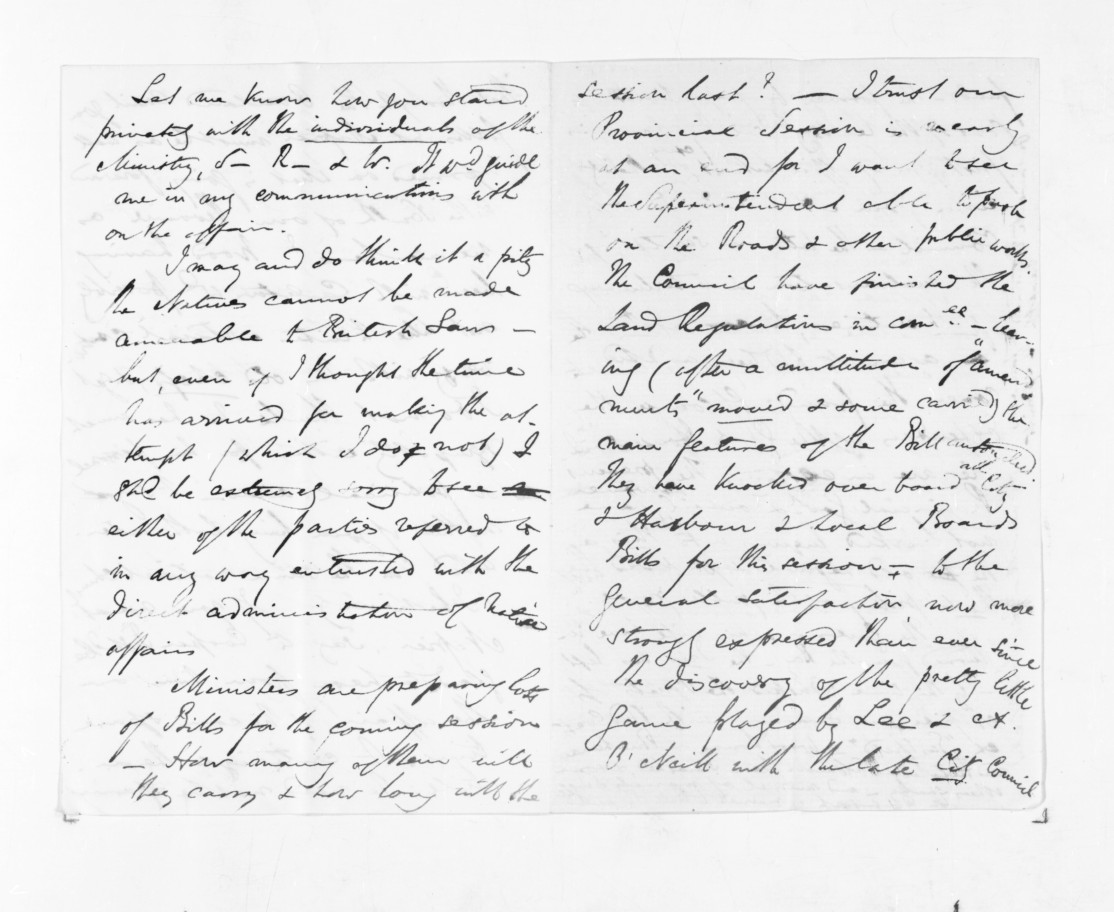 Let me know how you stand
privately with the individuals of the
Ministry, S— R— & W. It wd guide
me in my communications with
on the affair.
I may and do think it a pity
the Natives cannot be made
amenable to British Laws —
but, even if I thought the time
has arrived for making the at-
tempt (which I do not) I
shd be extremely sorry to see
either of the parties referred to
in any way entrusted with the
direct administration of Native
affairs
Ministers are preparing lots
of Bills for the coming session
— How many of them will
they carry & how long will the
session last? — I trust our
Provincial Session is nearly
at an end for I want to see
the Superintendent able to push
on the Roads & other public works.
The Council have finished the
Land Regulations in comee — leav-
ing (after a multitude of "amend
ments" moved & some carried) the
main features of the Bill untouched
They have knocked over board all City
& Harbour & Local Boards
Bills for this session — to the
general satisfaction now more
strongly expressed than ever since
the discovery of the pretty little
game played by Lee & A.
O'Neill with the late City Council